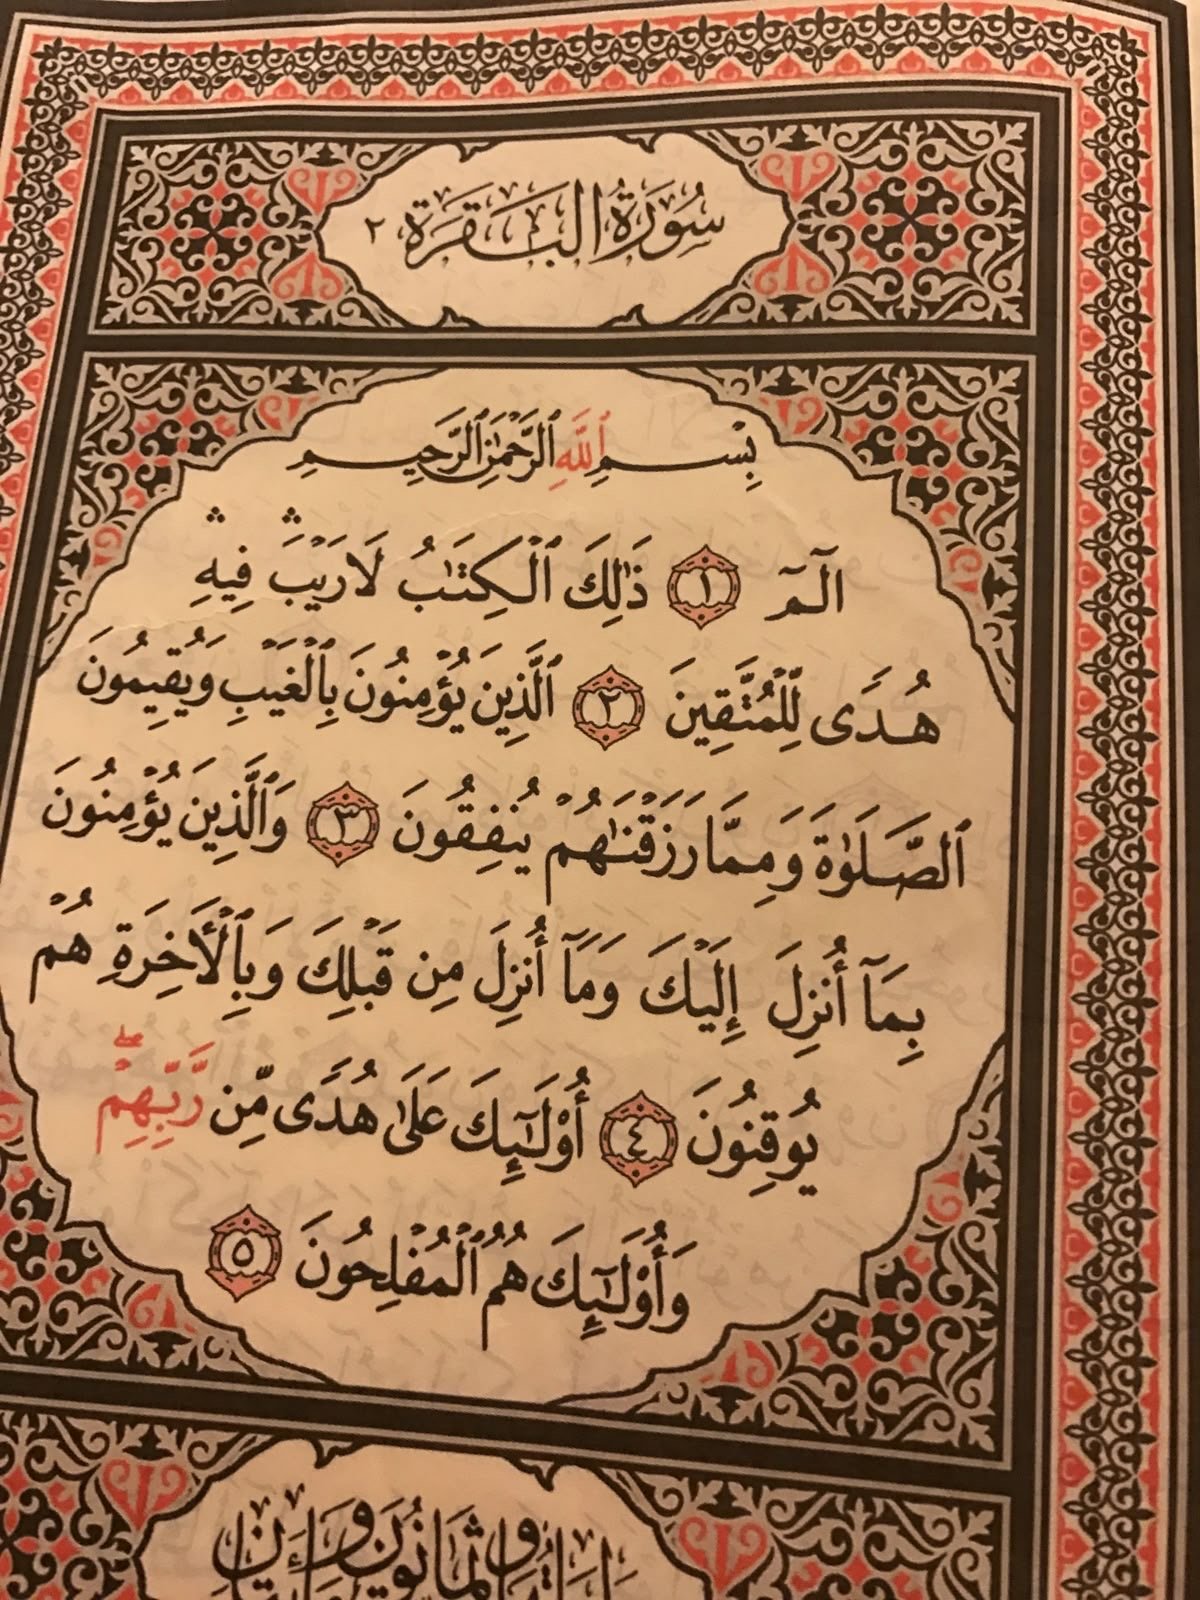 سُورَةُ الْبَقَرَةِ ٢
بِسْمِ ٱللَّهِ ٱلرَّحْمَٰنِ ٱلرَّحِيمِ
الٓمٓ ١ ذَٰلِكَ ٱلْكِتَٰبُ لَا رَيْبَ ۛ فِيهِ ۛ
هُدًى لِّلْمُتَّقِينَ ٢ ٱلَّذِينَ يُؤْمِنُونَ بِٱلْغَيْبِ وَيُقِيمُونَ
ٱلصَّلَوٰةَ وَمِمَّا رَزَقْنَٰهُمْ يُنفِقُونَ ٣ وَٱلَّذِينَ يُؤْمِنُونَ
بِمَآ أُنزِلَ إِلَيْكَ وَمَآ أُنزِلَ مِن قَبْلِكَ وَبِٱلْأَخِرَةِ هُمْ
يُوقِنُونَ ٤ أُو۟لَٰٓئِكَ عَلَىٰ هُدًى مِّن رَّبِّهِمْ ۖ
وَأُو۟لَٰٓئِكَ هُمُ ٱلْمُفْلِحُونَ ٥
وثمانون